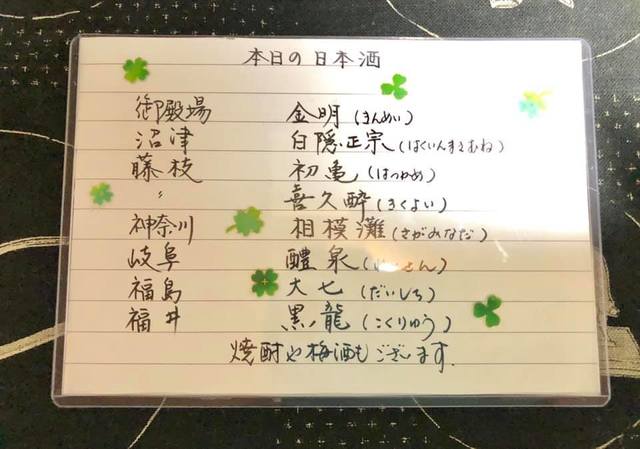 本日の日本酒
御殿場 金明(きんめい)
沼津 白隠正宗(はくいんまさむね)
藤枝 初亀(はつかめ)
〃 喜久酔(きくよい)
神奈川 相模灘(さがみなだ)
岐阜 醴泉(れいせん)
福島 大七(だいしち)
福井 黒龍(こくりゅう)
焼酎や梅酒もございます。